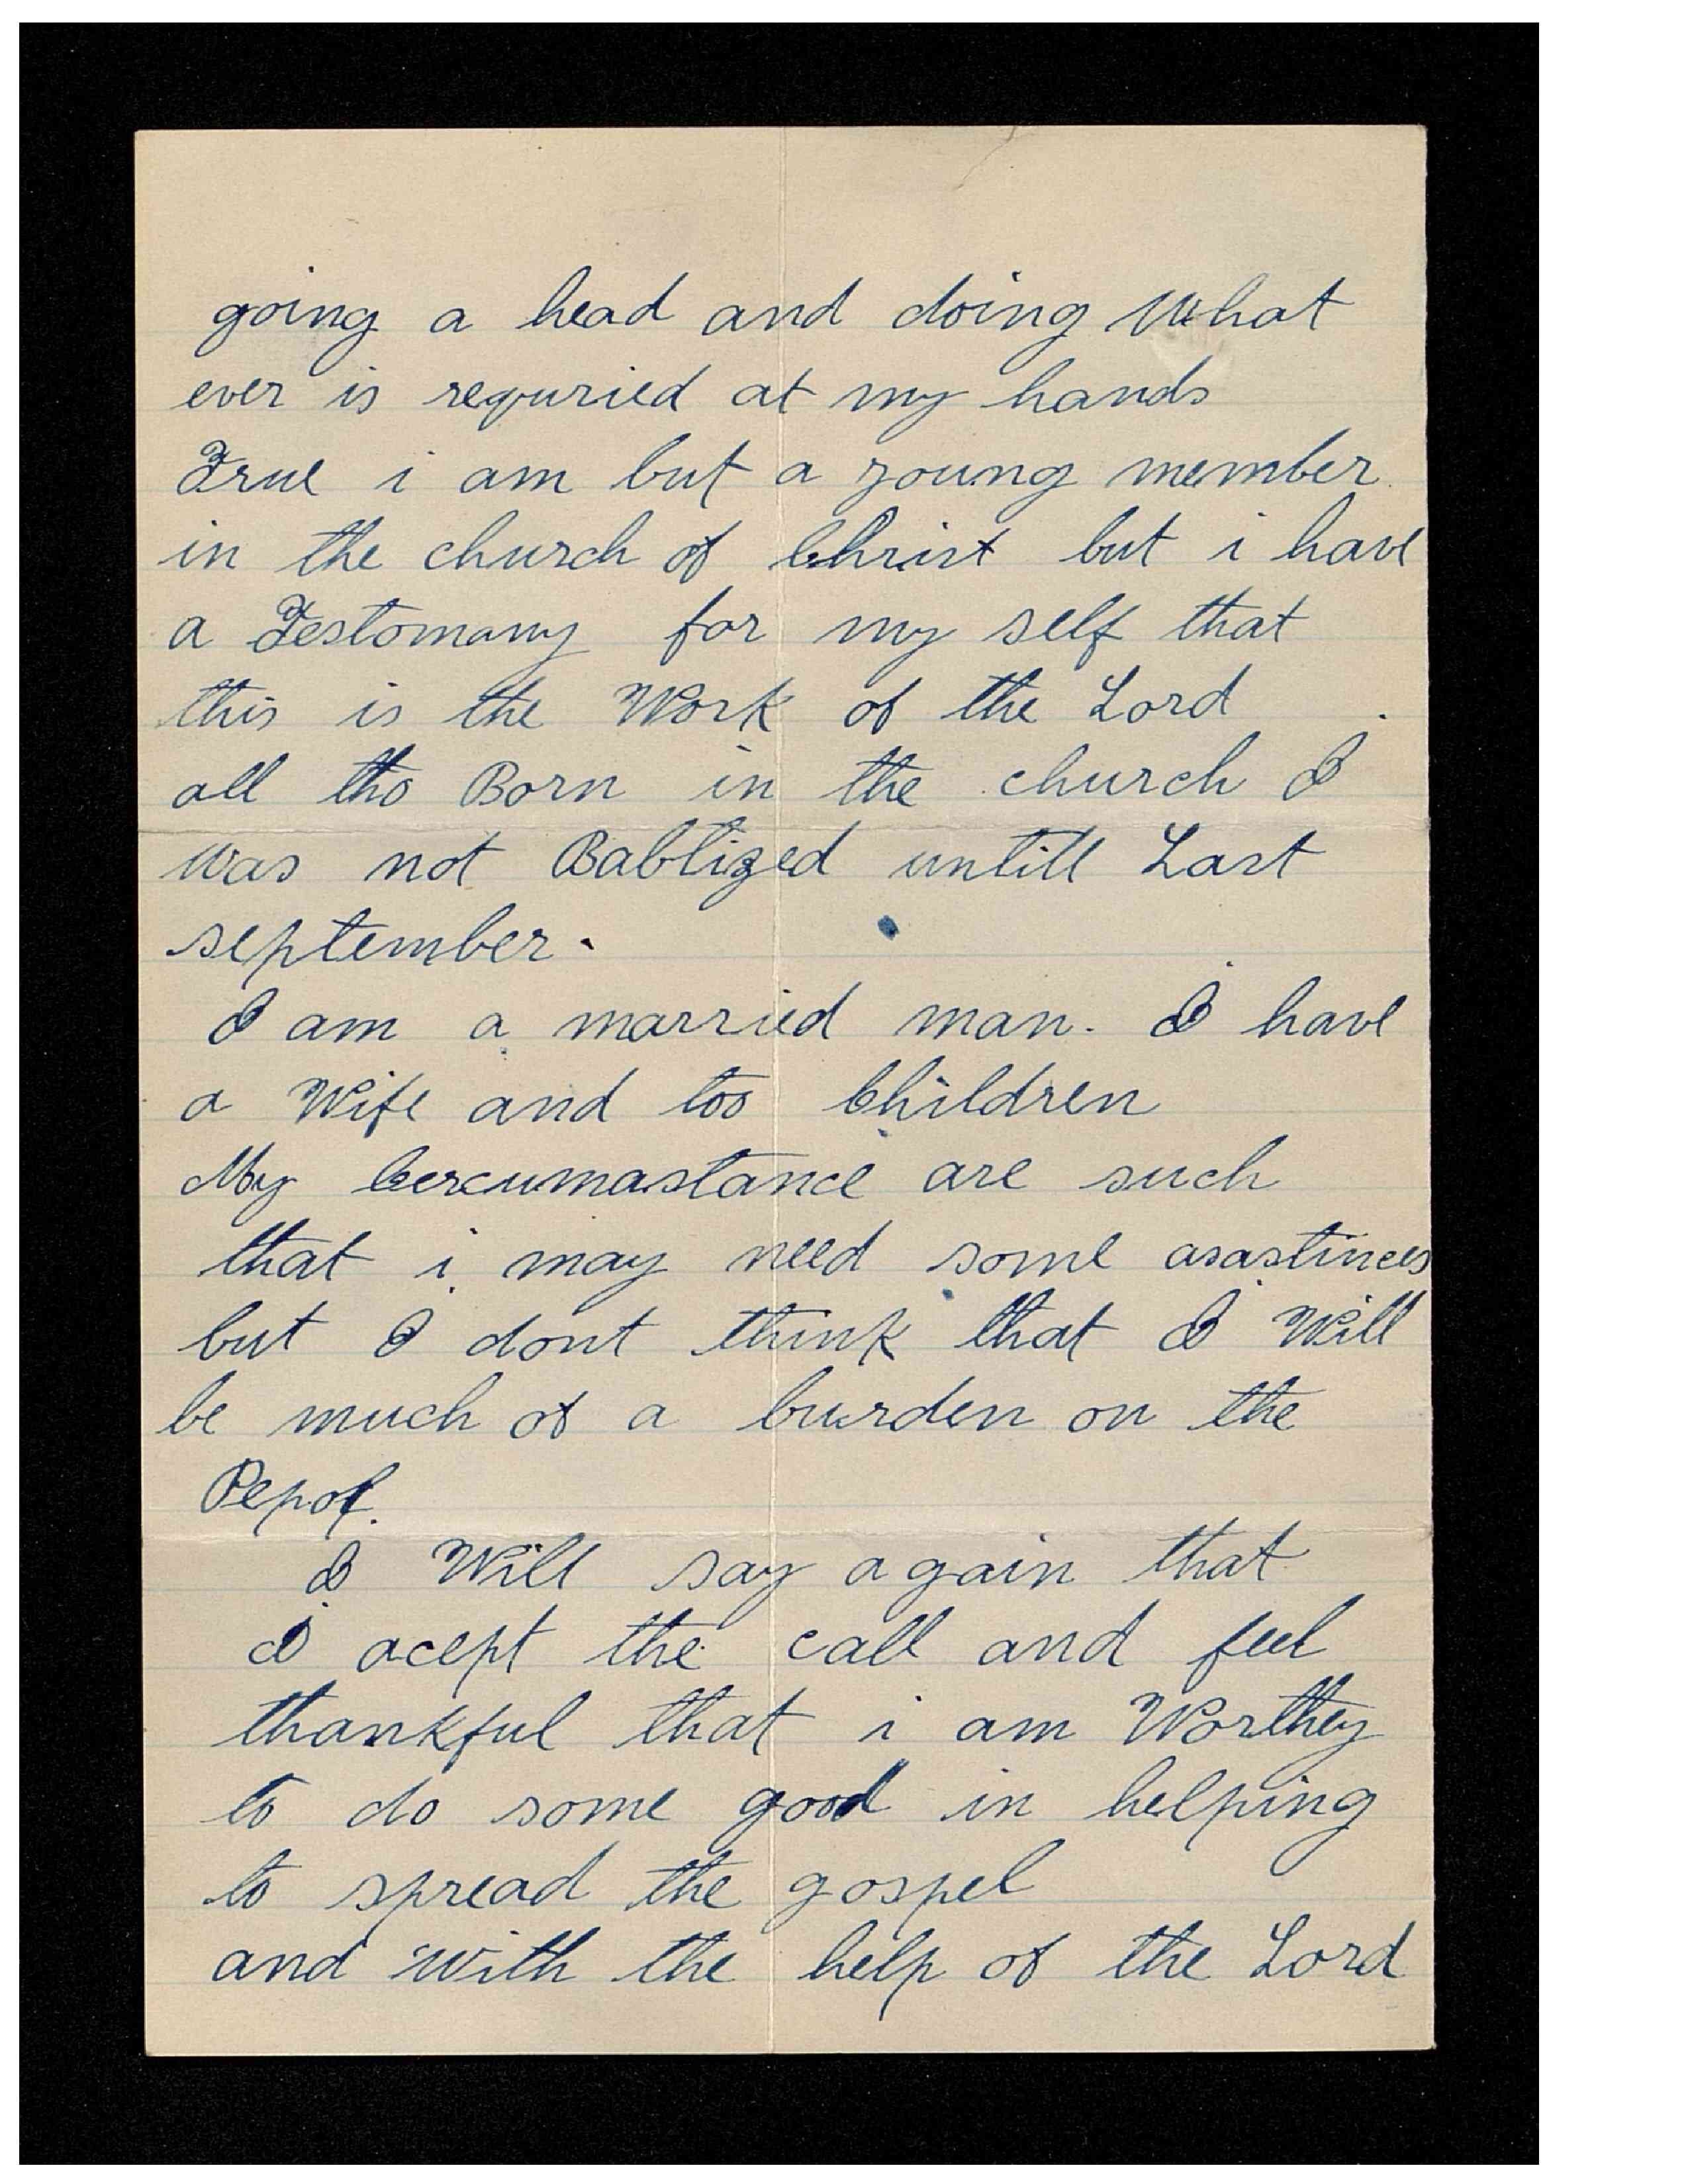 going a head and doing What
ever is requried at my hands
True i am but a young member
in the church of Christ but i have
a Testomany for my self that
this is the Work of the Lord
all tho Born in the church I
was not Babtized untill Last
september.
I am a married man. I have
a Wife and too Children
My Cercumastance are such
that i may need some asastinces
but I dont think that I Will
be much of a burden on the
Pepol.
I Will say again that
I acept the call and feel
thankful that i am Worthey
to do some good in helping
to spread the gospel
and with the help of the Lord